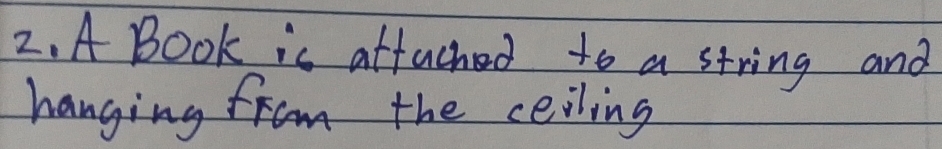 2. A Book is attached to a string and
hanging from the ceiling